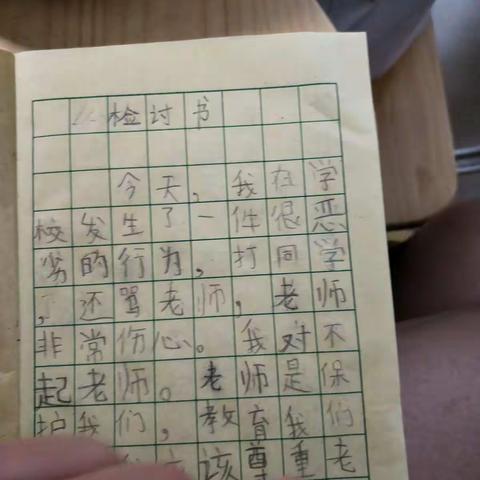 检讨书
今天，我在学
校发生了一件很恶
劣的行为，打同学
，还骂老师，老师
非常伤心。我对不
起老师。老师是保
护我们，教育我们
该尊重老